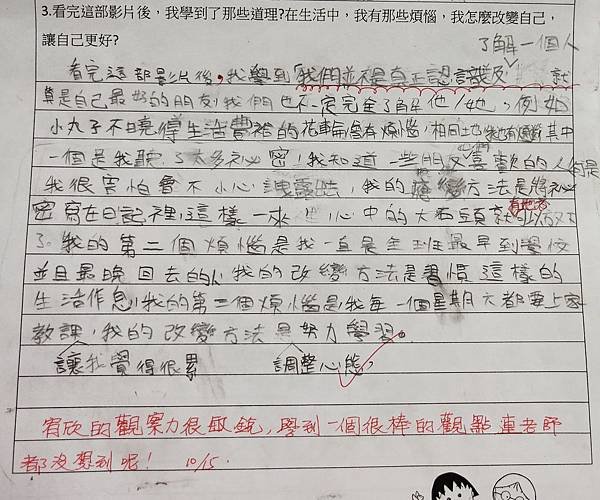 3.看完這部影片後，我學到了那些道理?在生活中，我有那些煩惱，我怎麼改變自己，
讓自己更好?
了解一個人
看完這部影片後，我學到「我們並不是真正認識及 就
算是自己最好的朋友，我們也不一定完全了解他/她。例如
小丸子不曉得生活豐裕的花輪會有煩惱，相同地我也有煩惱其中
一個是我聽了太多祕密，我知道一些朋友喜歡的人
我很害怕會不小心洩露 我的 改變方法是將祕
密寫在日記裡，這樣一來，心中的大石頭就可以放下
有地方
了。我的第二個煩惱是我一直是全班最早到學校
並且最晚回去的，我的改變方法是習慣這樣的
生活作息，我的第三個煩惱是我每一個星期六都要上家
教課，我的改變方法是努力學習。
讓我覺得很累 調整心態，
宥欣的觀察力很敏銳，學到一個很棒的觀點連老師
都沒想到呢！ 10/15.